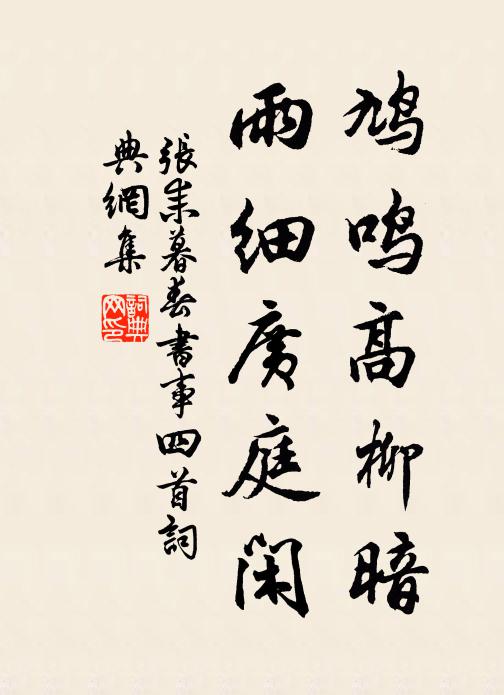 鸠鸣高柳暗
雨细广庭闲
張耒暮春書事四首詞
典網集
詞典網印